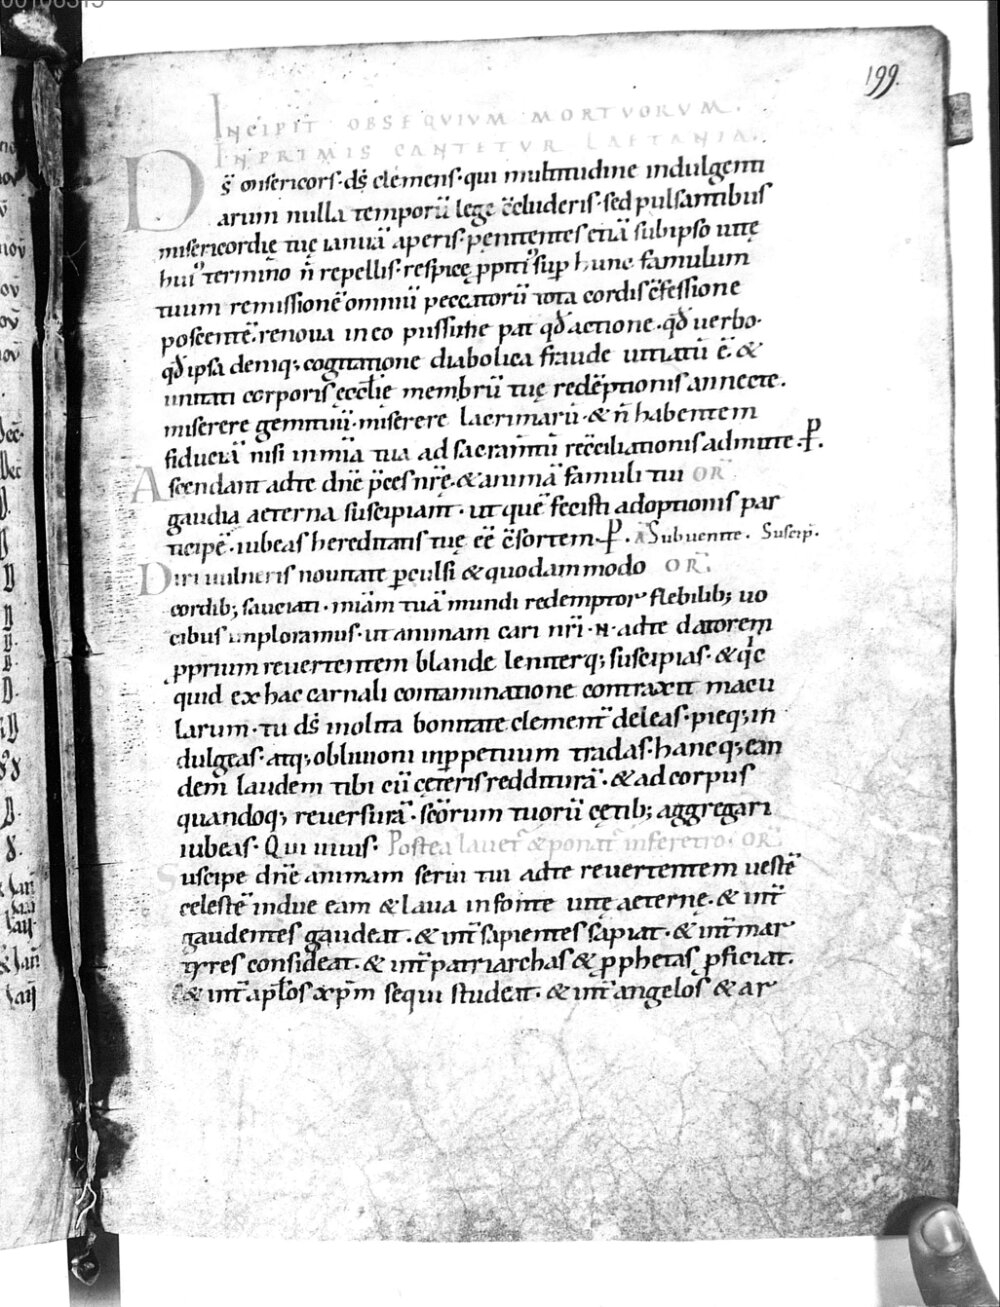 199.
INCIPIT OBSEQVIVM MORTVORVM.
INPRIMIS CANTETVR LAETANIA.
Ds̄ misericors· ds̄ clemens· qui multitudine indulgenti
arum nulla temporū lege c̄cluderis· sed pulsantibus
misericordię tuę ianuā aperis· penitentes etiā sub ipso uitę
hui᷒ termino n̄ repellis· respice ꝓpiti᷒ sup hunc famulum
tuum remissionē omniū peccatorū tota cordis c̄fessione
poscentē· renoua in eo piissime pat̄ qđ actione· qđ uerbo·
qđ ipsa deniq; cogitatione diabolica fraude uitiatū ē· &
unitati corporis ęccl̄ie membrū tuę redēptionis annecte.
miserere gemituū· miserere lacrimarū· & n̄ habentem
fiduciā nisi in mīa tua ad sacram̄tū rec̄ciliationis admitte· P.
Ascendant ad te dn̄e p̄ces nr̄e· & animā famuli tui OR̄
gaudia aeterna suscipiant· ut quē fecisti adoptionis par
ticipē· iubeas hereditatis tuę eē c̄sortem P. A Subuenite. Suscip̄.
Diri uulneris nouitate ꝑculsi & quodammodo OR̄.
cordib; sauciati· mīam tuā mundi redemptor flebilib; uo
cibus imploramus· ut animam cari nr̄i· N· ad te datorem
ꝓprium reuertentem blande leniterq; suscipias· & qc̄
quid ex hac carnali contaminatione contraxit macu
larum· tu ds̄ molita bonitate clement̄ deleas· pieq; in
dulgeas· atq; obliuioni inꝑpetuum tradas· hancq; ean
dem laudem tibi cū cęteris redditurā· & ad corpus
quandoq; reuersurā· scōrum tuorū cętib; aggregari
iubeas· Qui uiuis· Postea lauet̄ & ponat̄ in feretro· OR̄.
Suscipe dn̄e animam serui tui ad te reuertentem uestē
celestē indue eam & laua in fonte uitę aeternę· & int̄
gaudentes gaudeat· & int̄ sapientes sapiat· & int̄ mar
tyres consideat· & int̄ patriarchas & ꝓphetas ꝓficiat.
& int̄ apl̄os xp̄m sequi studeat· & int̄ angelos & ar